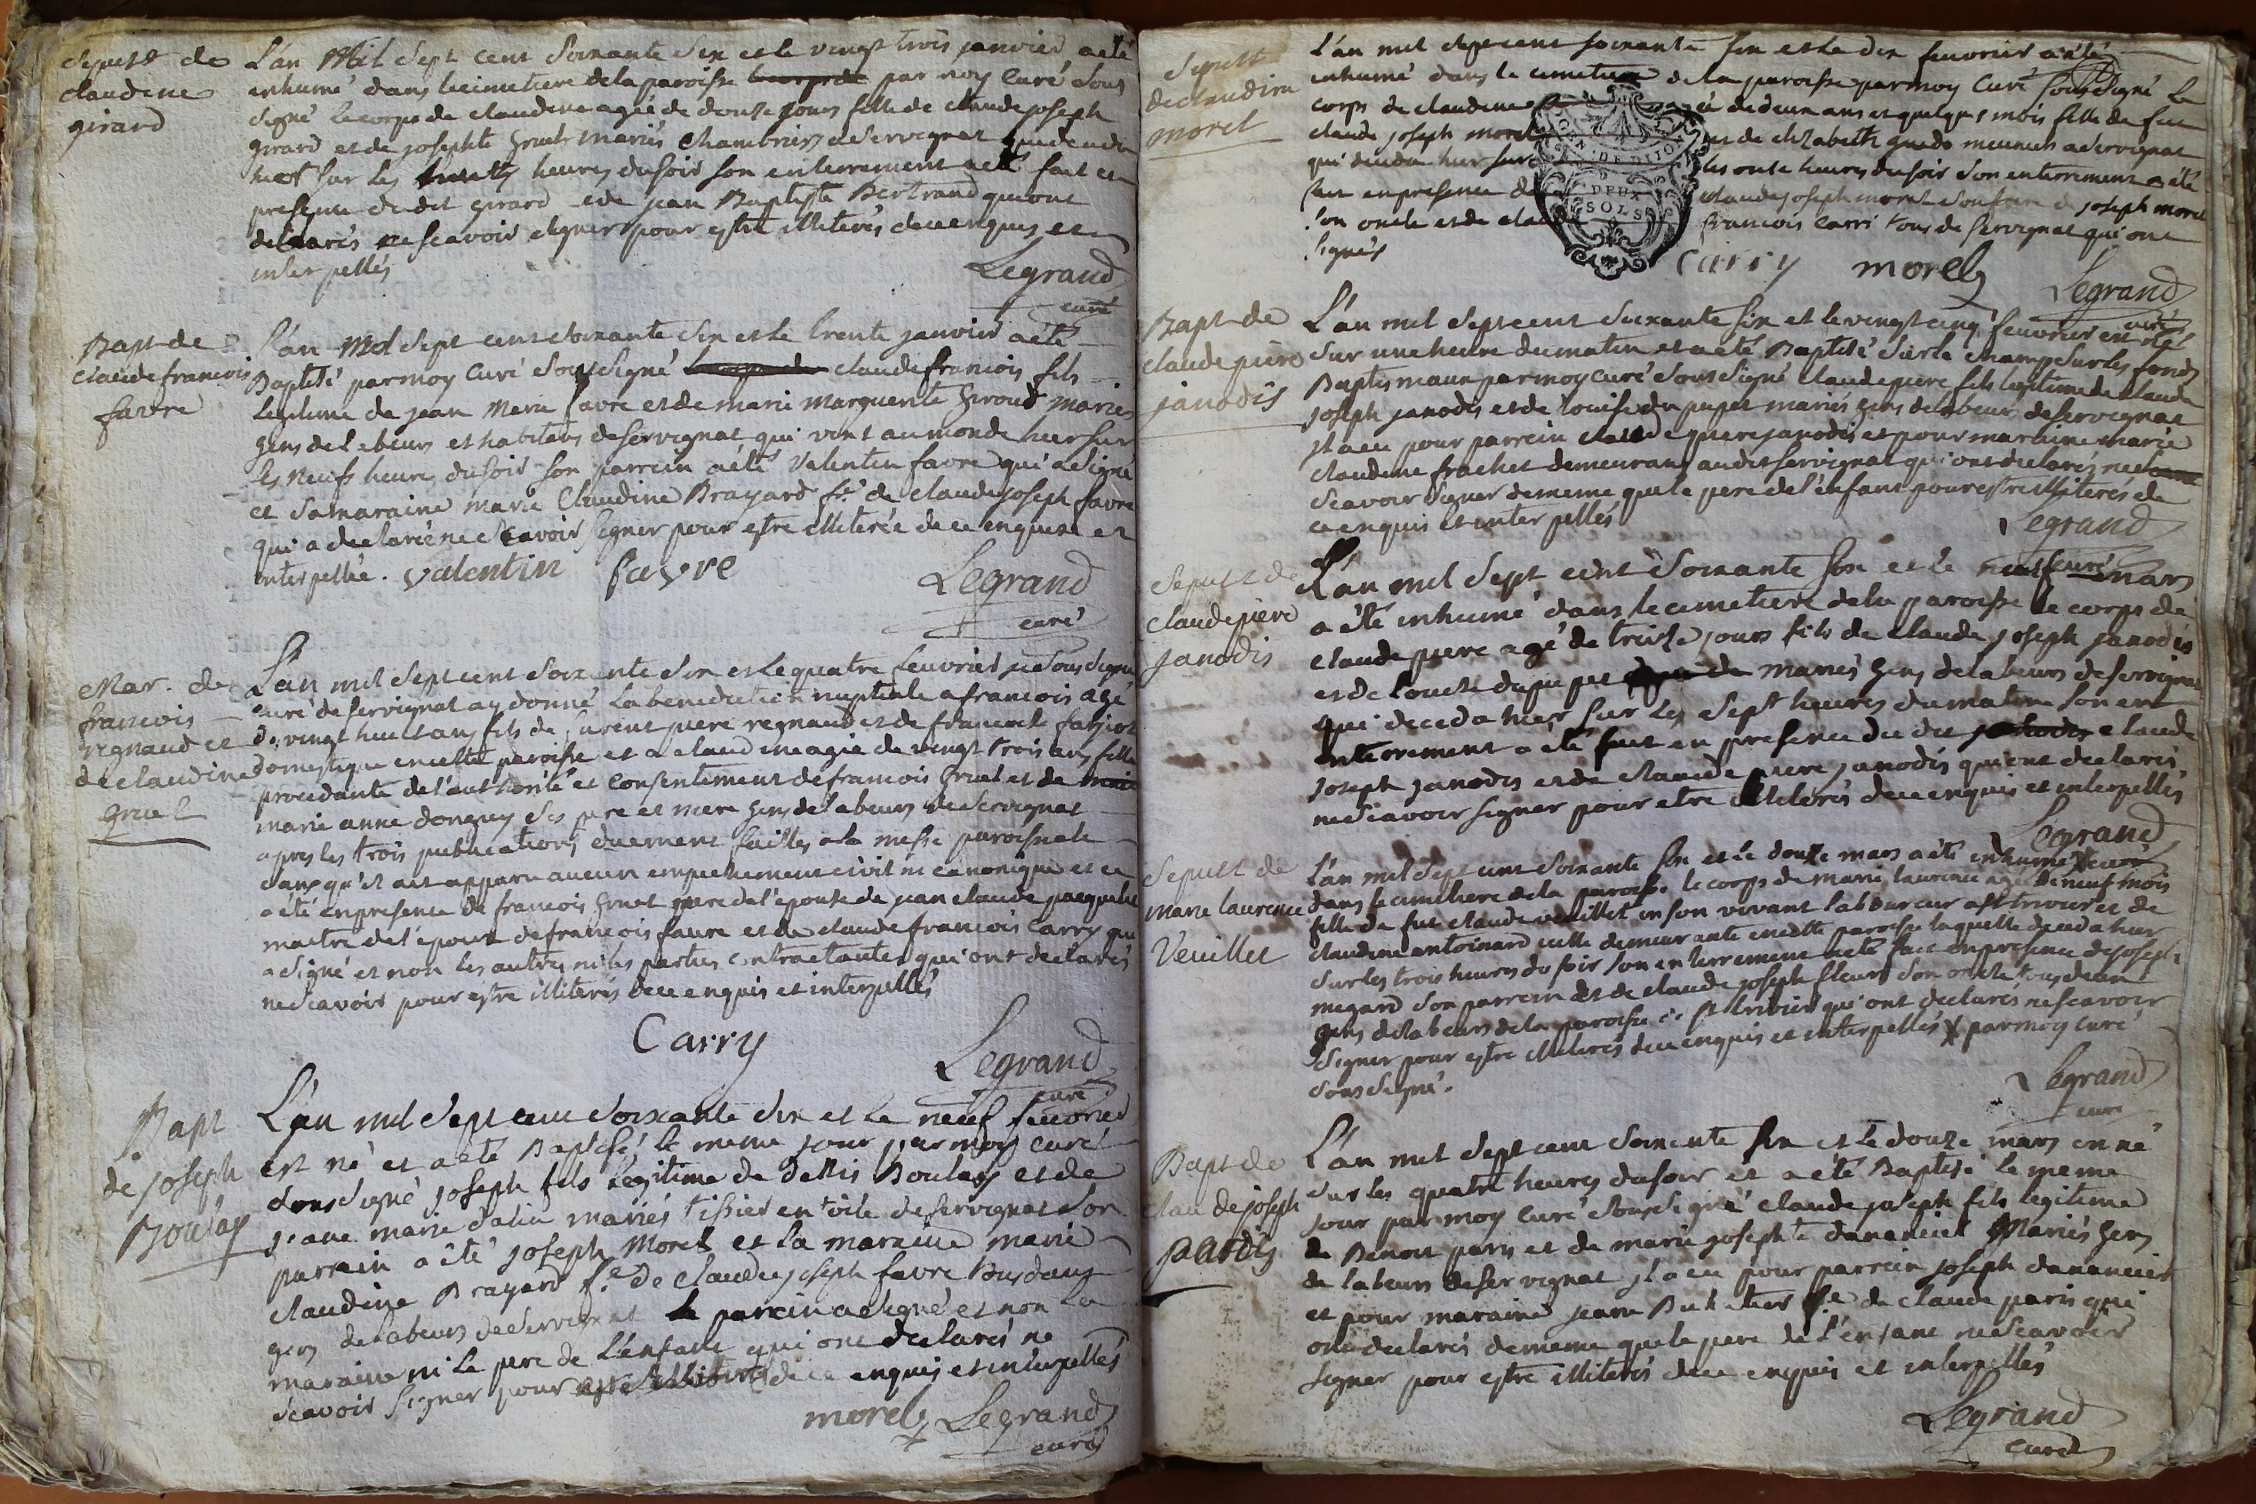 Sepult de
claudine
girard
L'an Mil sept cent Soixante Six et le vingt trois janvier a eté
inhumé dans le cimetiere de la paroisse par moy Curé Sous
signé le corps de claudine agée de douze jours fille de claude joseph
girard et de josephte gruel mariés de Servignat
sur les heures du soir son enterrement a eté fait en
presence du dit girard et de jean Baptiste Bertrand qui ont
declarés ne scavoir signer pour estre illiterés de ce enquis et
interpellés
Legrand
curé
Bapt de
claude francois
favre
L'an Mil Sept cent Soixante Six et le trente janvier a eté
Baptisé par moy Curé Sousigné claude francois fils
legitime de jean Marie favre et de marie marguerite Giroud mariés
gens de labeurs et habitans de Servignat qui vint au monde hier sur
les neufs heures du soir son parrein a eté Valentin favre qui a signé
et Sa maraine marie Claudine Brayard fe de claude joseph favre
qui a declarée ne Scavoir Signer pour estre illiterée de ce enquise et
interpellée. valentin favre
Legrand
curé
Mar. de
francois
regnaud et
de claudine
gruel
L'an mil Sept cent Soixante Six et le quatre feuvrier je Sous Signé
curé de Servignat ay donné la benediction nuptiale a francois agé
de vingt huit ans fils de Laurent piere regnaud et de francoise farjot
domestique en cette paroisse et a claudine agée de vingt trois ans fille
procedante de l'authorité et consentement de francois Gruel et de
marie anne donguy Ses pere et mere gens de labeurs de Servignat
apres les trois publications duement faittes a la messe paroissiale
sans qu'il ait apparu aucun empechement civil ni canonique et ce
a été en presence de francois gruel pere de l'épouse de jean claude
maitre de l'epoux de francois favre et de claude francois Carry qui
a signé et non les autres ni les parties contractantes qui ont declarés
ne Scavoir pour estre illiterés de ce enquis et interpellés
Carry
Legrand
curé
Bapt
de joseph
Boulay
L'an mil Sept cent Soixante Six et le neuf feuvrier
est né et a eté Baptisé le meme jour par moy curé
Sous Signé joseph fils legitime de denis Boulay et de
jeane marie dalin mariés tissier en toile de Servignat Son
parrain a été joseph Morel et la maraine marie
claudine Brayard fe de claude joseph favre
gens de labeurs de Servignat le parrein a signé et non la
maraine ni le pere de l'enfant qui ont declarés ne
scavoir Signer pour estre illiterés de ce enquis et interpellés
morel Legrand
curé
Sepult
de claudine
morel
L'an mil sept cent soixante six et le dix feuvrier a été
inhumé dans le cimetiere de la paroisse par moy Curé Sousigné le
corps de claudine de deux ans et quelques mois fille de fut
claude joseph morel et de elizabeth meunier a Servignat
qui deceda hier sur les onze heures du soir Son enterrement a été
fait en presence de claude joseph morel Son frere de joseph morel
son oncle et de francois Carri tous de Servignat qui ont
signés
Carry morel
Legrand
curé
Bapt de
claude piere
janodis
L'an mil Sept cent Soixante Six et le vingt cinq feuvrier
sur une heure du matin et a eté Baptisé sur le champ sur les fonds
Baptismaux par moy curé Sous Signé claude piere fils legitime de claude
joseph janodis et de Louise dupupet mariés gens de labeurs de Servignat
Il a eu pour parrein claude piere janodis et pour maraine marie
claudine frachet demeurans au dit Servignat qui ont declarés ne
Scavoir Signer de meme que le pere de l'enfant pour estre illiterés de
ce enquis et interpellés
Legrand
curé
Sepult de
claude piere
janodis
L'an mil Sept cent Soixante Six et le neuf mars
a été inhumé dans le cimetiere de la paroisse le corps de
claude piere agé de treize jours fils de claude joseph janodis
et de Louise dupupet mariés gens de labeurs de Servignat
qui deceda hier sur les Sept heures du matin son en
interrement a été fait en presence du dit claude
joseph janodis et de claude piere janodis qui ont declarés
ne Scavoir signer pour etre illiterés de ce enquis et interpellés
Legrand
curé
Sepult de
marie laurence
Veuillet
L'an mil Sept cent Soixante Six et le douze mars a été inhumé
dans le cimethiere de la paroisse le corps de marie laurence agée de neuf mois
fille de fut claude veuillet en son vivant laboureur a St trivier et de
claudine antoinard icelle demeurante en cette paroisse laquelle deceda hier
sur les trois heures du soir son enterrement a eté fait en presence de joseph
megard son parrein et de claude joseph fleury son oncle tous deux
gens de labeurs de la paroisse de St trivier qui ont declarés ne scavoir
signer pour estre illiterés de ce enquis et interpellés X par moy curé
sous signé.
Legrand
curé
Bapt de
claude joseph
paris
L'an mil Sept cent Soixante Six et le douze mars est né
sur les quatre heures du soir et a eté Baptisé le meme
jour par moy curé Sous Signé claude joseph fils legitime
de Benoit paris et de marie josephte dananciel Mariés gens
de labeurs de Servignat il a eu pour parrein joseph dananciel
et pour maraine jeane fe de claude paris qui
ont declarés de meme que le pere de l'enfant ne Scavoir
signer pour estre illiterés de ce enquis et interpellés
Legrand
curé